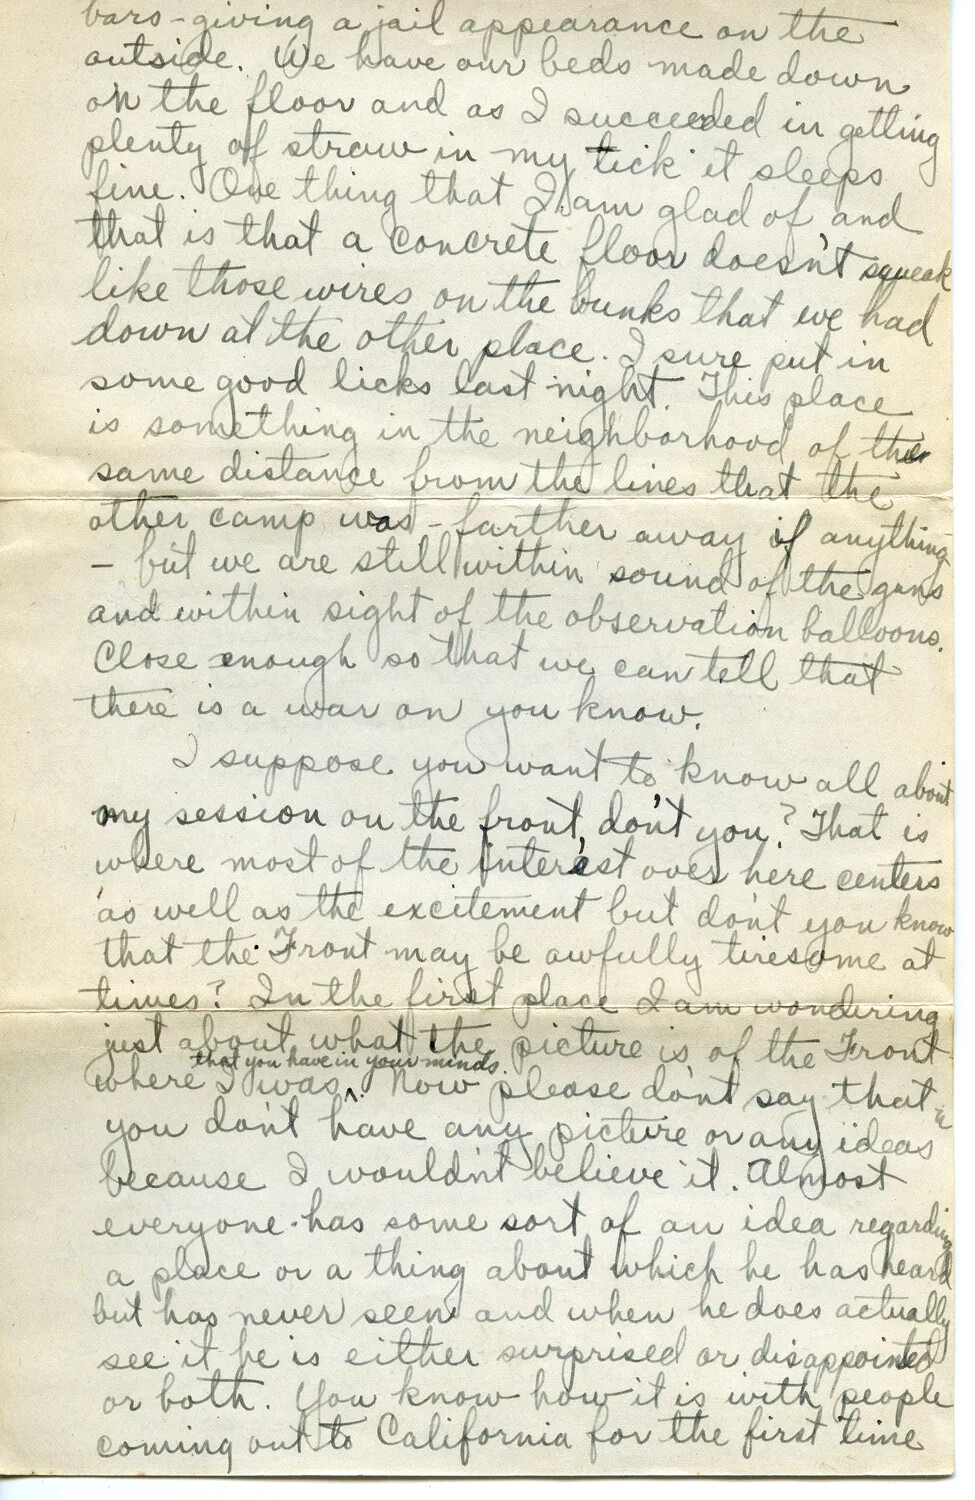 bars - giving a jail appearance on the
outside. We have our beds made down
on the floor and as I succeeded in getting
plenty of straw in my tick it sleeps
fine. One thing that I am glad of and
that is that a concrete floor doesn't squeak
like those wires on the bunks that we had
down at the other place. I sure put in
some good licks last night. This place
is something in the neighborhood of the
same distance from the lines that the
other camp was - farther away if anything
- but we are still within sound of the guns
and within sight of the observation balloons.
Close enough so that we can tell that
there is a war on you know.
I suppose you want to know all about
my session on the front, don't you? That is
where most of the interest over here centers
as well as the excitement but don't you know
that the Front may be awfully tiresome at
times? In the first place I am wondering
just about what the picture is of the Front
that you have in your minds.
where I was ^. Now please don't say that
you don't have any picture or any ideas
because I wouldn't believe it. Almost
everyone has some sort of an idea regarding
a place or a thing about which he has heard
but has never seen and when he does actually
see it he is either surprised or disappointed
or both. You know how it is with people
coming out to California for the first time